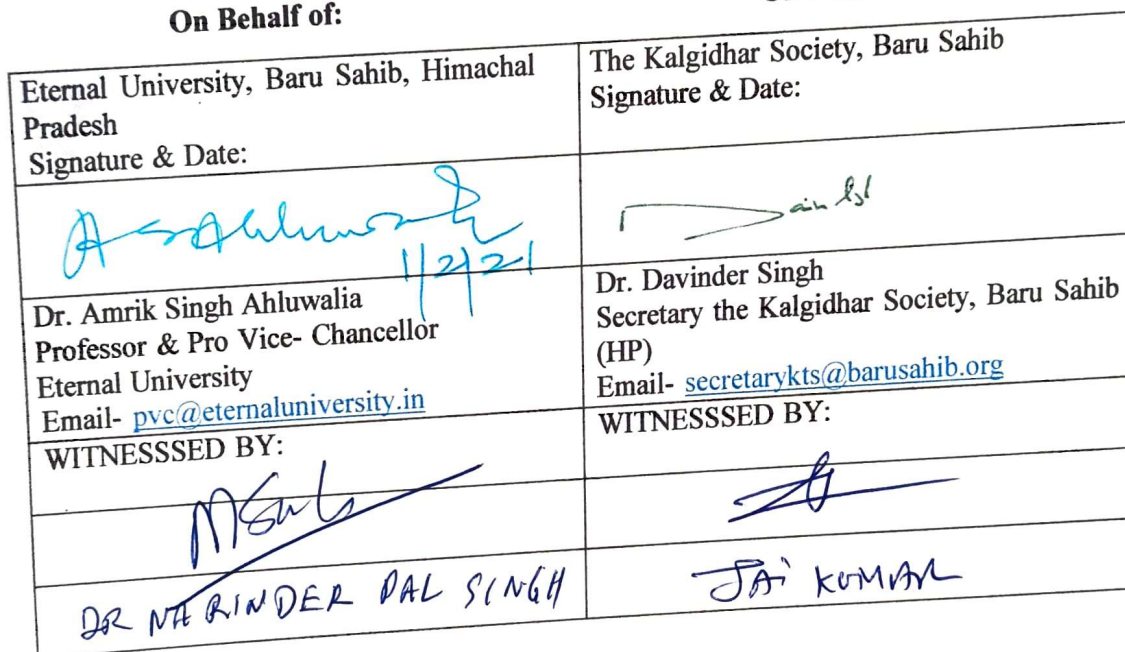 On Behalf of:
Eternal University, Baru Sahib, Himachal
Pradesh
Signature & Date:
The Kalgidhar Society, Baru Sahib
Signature & Date:
1/2/21
Dr. Amrik Singh Ahluwalia
Professor & Pro Vice- Chancellor
Eternal University
Email- pvc@eternaluniversity.in
Dr. Davinder Singh
Secretary the Kalgidhar Society, Baru Sahib
(HP)
Email- secretarykts@barusahib.org
WITNESSSED BY:
WITNESSSED BY:
DR NARINDER PAL SINGH
JAI KUMAR